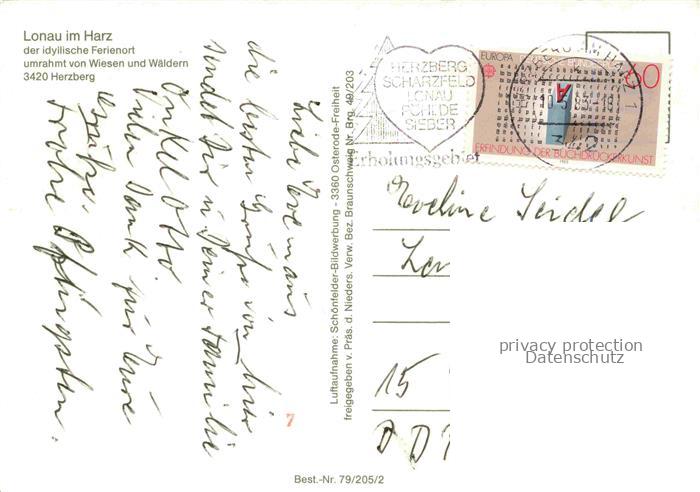 Lonau im Harz
der idyllische Ferienort
umrahmt von Wiesen und Wäldern
3420 Herzberg
HERZBERG
SCHARZFELD
LONAU
PÖHLDE
SIEBER
Erholungsgebiet
HERZBERG AM HARZ 1
EUROPA
60
A
ERFINDUNG DER BUCHDRUCKERKUNST
Liebe Evemaus
die besten Grüße von hier
sendet Dir u. Deiner Familie
Onkel Otto
Vielen Dank für Eure
Grüße.
Frohe Pfingsten.
Luftaufnahme: Schönfelder-Bildwerbung - 3360 Osterode-Freiheit
freigegeben v. Präs. d. Nieders. Verw. Bez. Braunschweig Nr. Brg. 49/203
Eveline Seidel
15
DDR
7
privacy protection
Datenschutz
Best.-Nr. 79/205/2